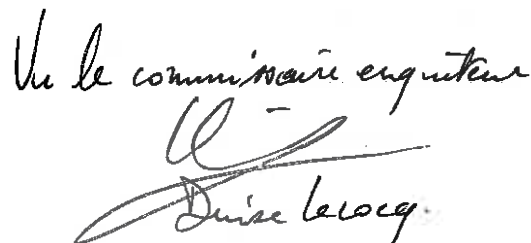 Vu le commissaire enquêteur
Denise Lecocq.